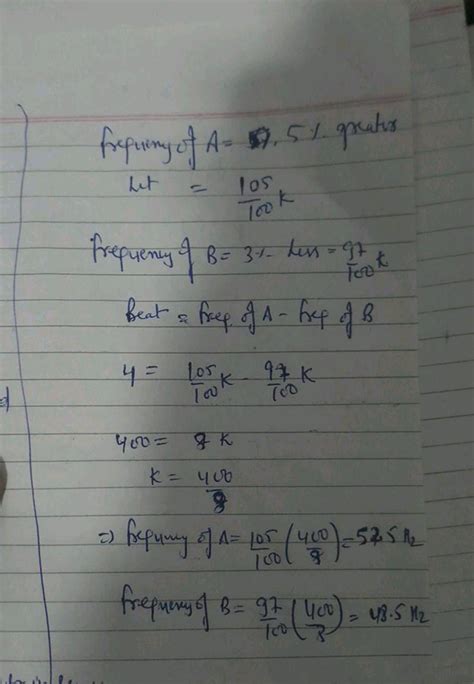 frequency of A = 5% greater
Let = 105/100 K
frequency of B = 3% less = 97/100 K
Beat = freq. of A - freq of B
4 = 105/100 K - 97/100 K
400 = 8 K
K = 400/8
=) frequency of A = 105/100 (400/8) = 52.5 Hz
frequency of B = 97/100 (400/8) = 48.5 Hz